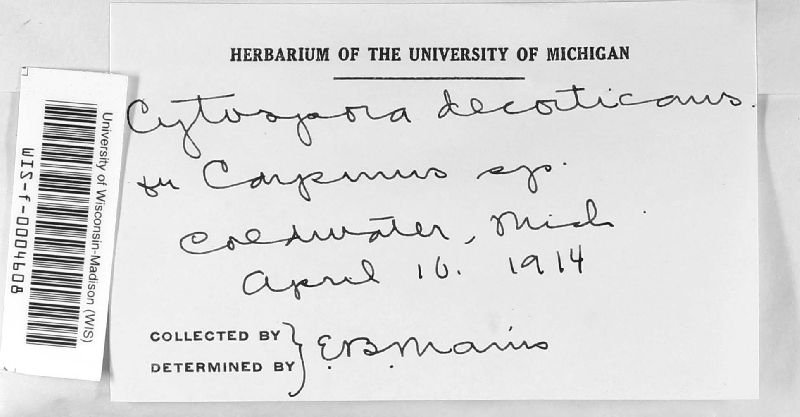 HERBARIUM OF THE UNIVERSITY OF MICHIGAN
Cytospora decorticans.
on Carpinus sp.
Coldwater, Mich.
April 10. 1914
COLLECTED BY
DETERMINED BY } E.B. Mains
University of Wisconsin-Madison (WIS)
WIS-f-0004608